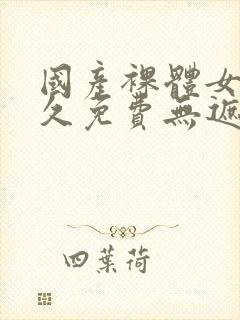 國產裸體女
久免費無遮
四葉荷